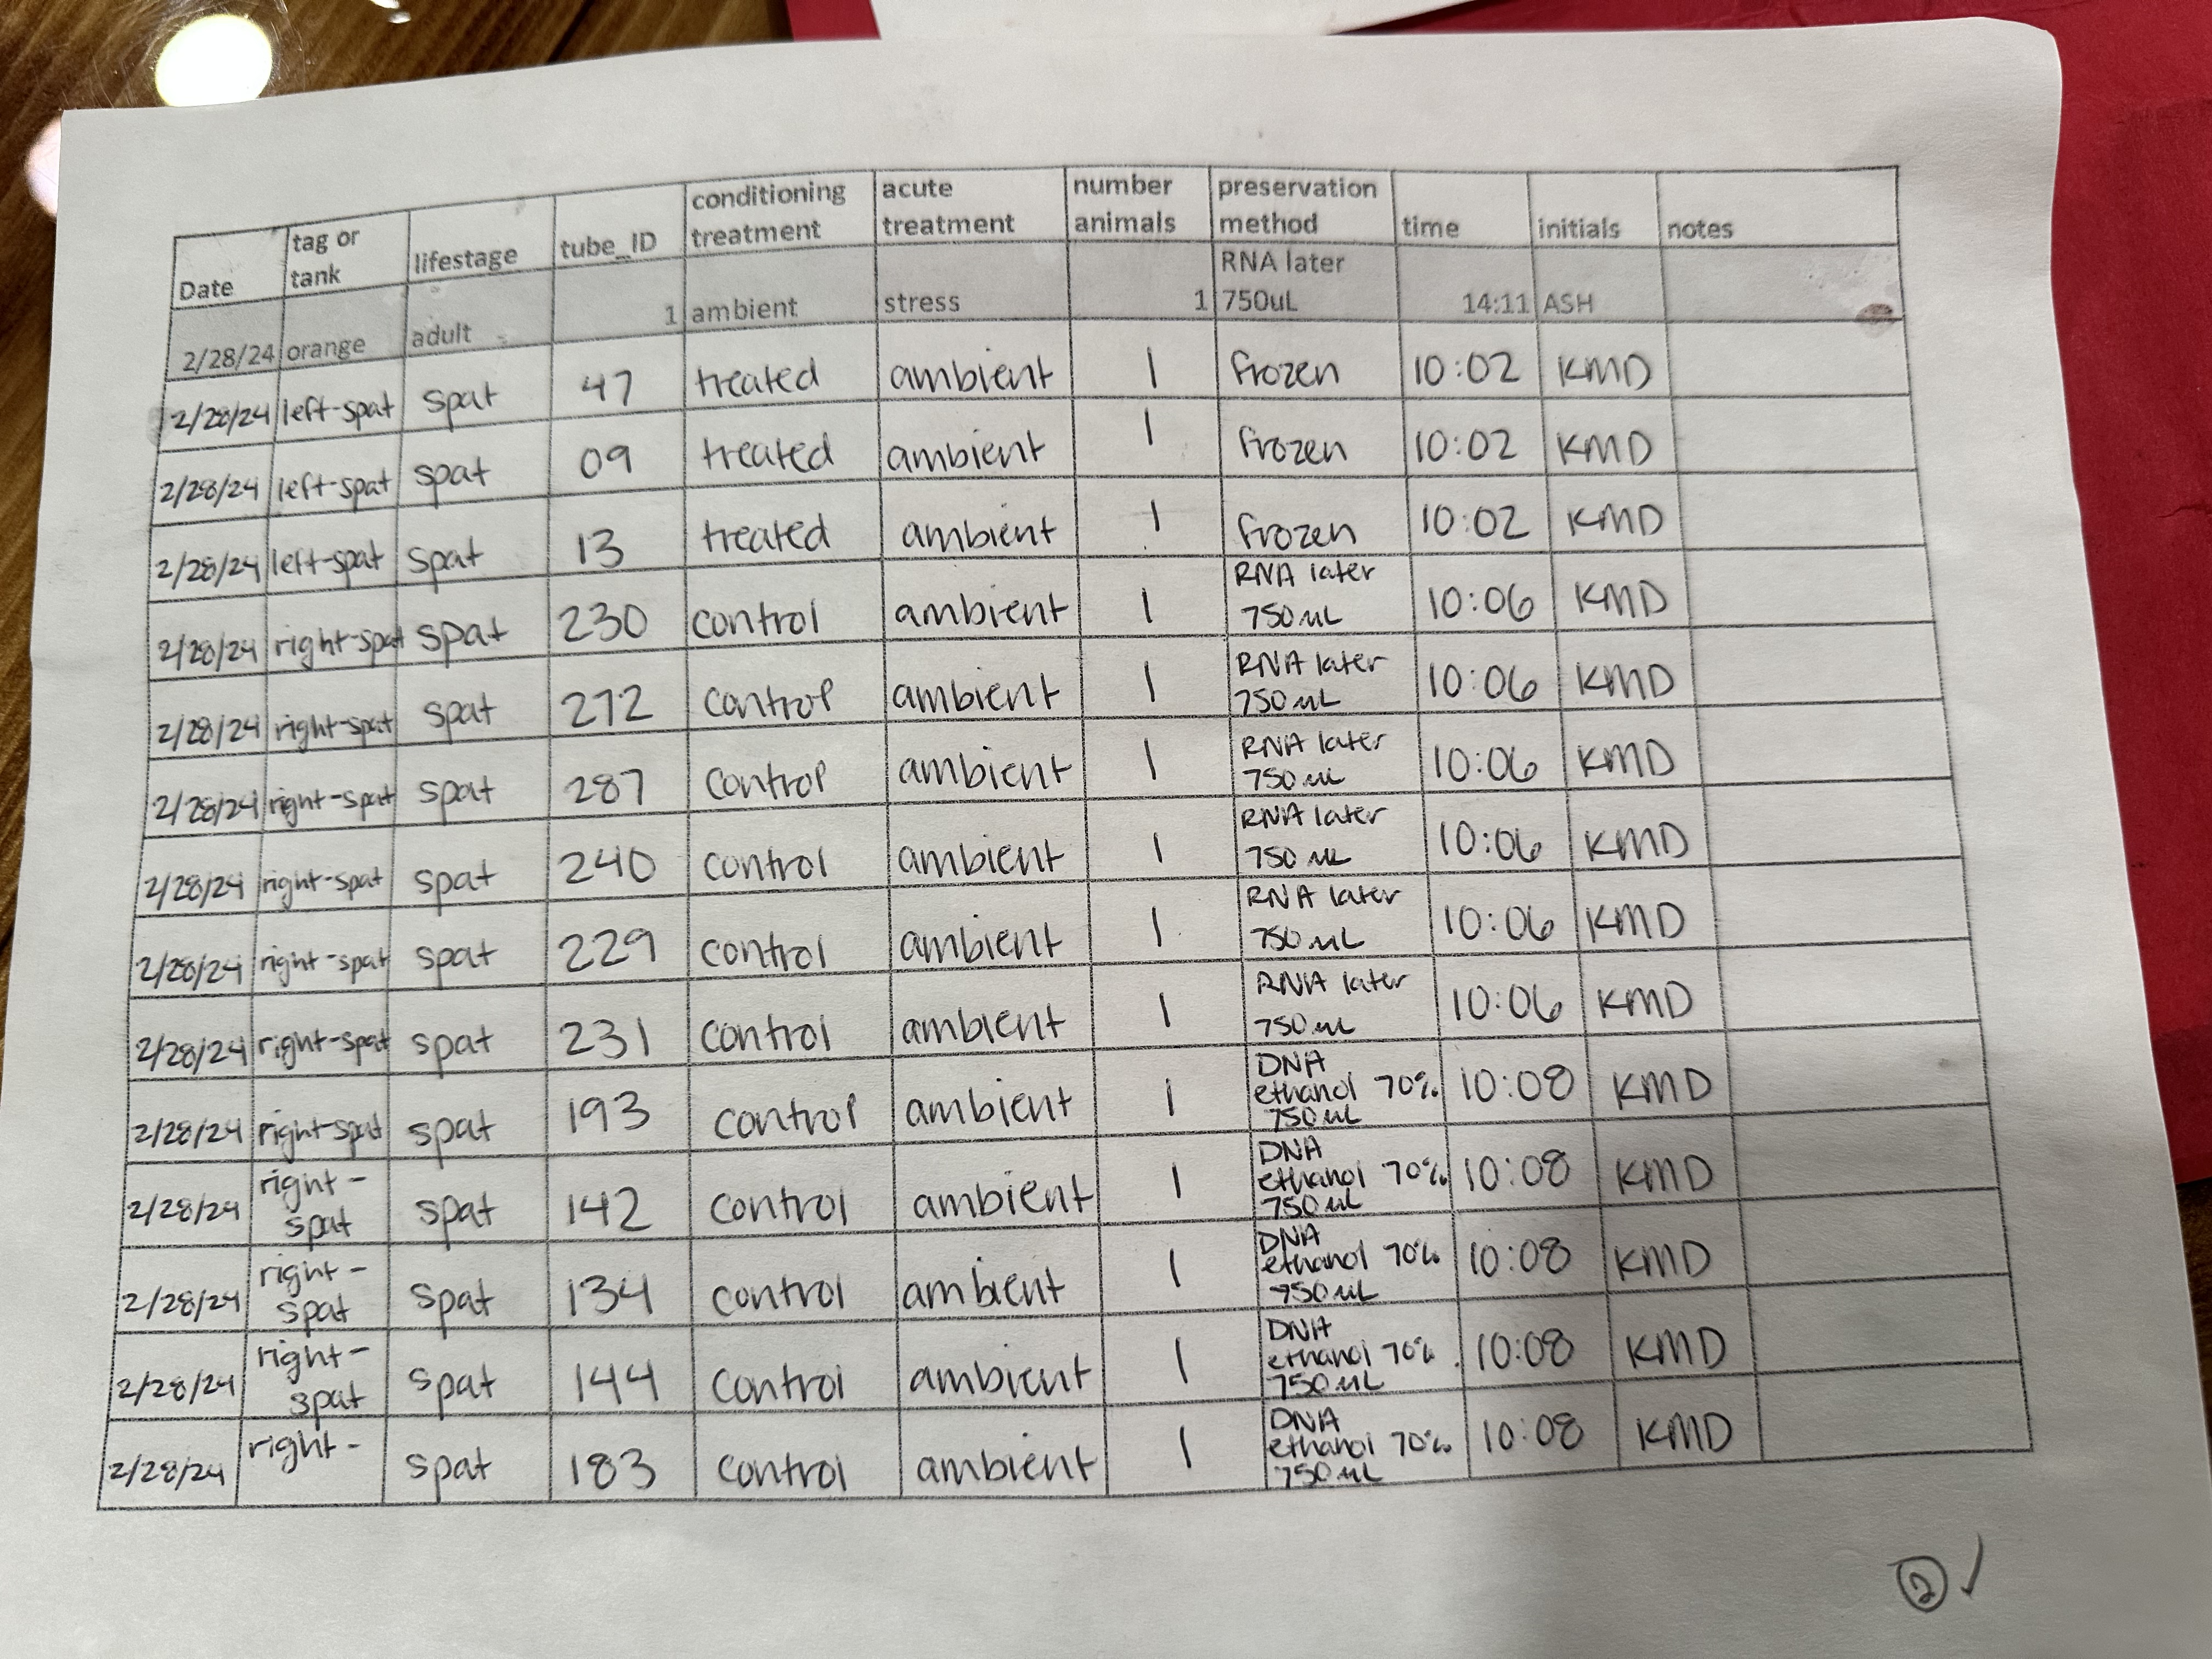 Date | tag or tank | lifestage | tube_ID | conditioning treatment | acute treatment | number animals | preservation method | time | initials | notes
2/28/24 | orange | adult | 1 | ambient | stress | 1 | RNA later 750uL | 14:11 | ASH
2/28/24 | left-spat | spat | 47 | treated | ambient | 1 | frozen | 10:02 | KMD
2/28/24 | left-spat | spat | 09 | treated | ambient | 1 | frozen | 10:02 | KMD
2/28/24 | left-spat | spat | 13 | treated | ambient | 1 | frozen | 10:02 | KMD
2/28/24 | right-spat | spat | 230 | control | ambient | 1 | RNA later 750uL | 10:06 | KMD
2/28/24 | right-spat | spat | 272 | control | ambient | 1 | RNA later 750uL | 10:06 | KMD
2/28/24 | right-spat | spat | 287 | control | ambient | 1 | RNA later 750uL | 10:06 | KMD
2/28/24 | right-spat | spat | 240 | control | ambient | 1 | RNA later 750uL | 10:06 | KMD
2/28/24 | right-spat | spat | 229 | control | ambient | 1 | RNA later 750uL | 10:06 | KMD
2/28/24 | right-spat | spat | 231 | control | ambient | 1 | RNA later 750uL | 10:06 | KMD
2/28/24 | right-spat | spat | 193 | control | ambient | 1 | DNA ethanol 70% 750uL | 10:08 | KMD
2/28/24 | right-spat | spat | 142 | control | ambient | 1 | DNA ethanol 70% 750uL | 10:08 | KMD
2/28/24 | right-spat | spat | 134 | control | ambient | 1 | DNA ethanol 70% 750uL | 10:08 | KMD
2/28/24 | right-spat | spat | 144 | control | ambient | 1 | DNA ethanol 70% 750uL | 10:08 | KMD
2/28/24 | right- | spat | 183 | control | ambient | 1 | DNA ethanol 70% 750uL | 10:08 | KMD
2